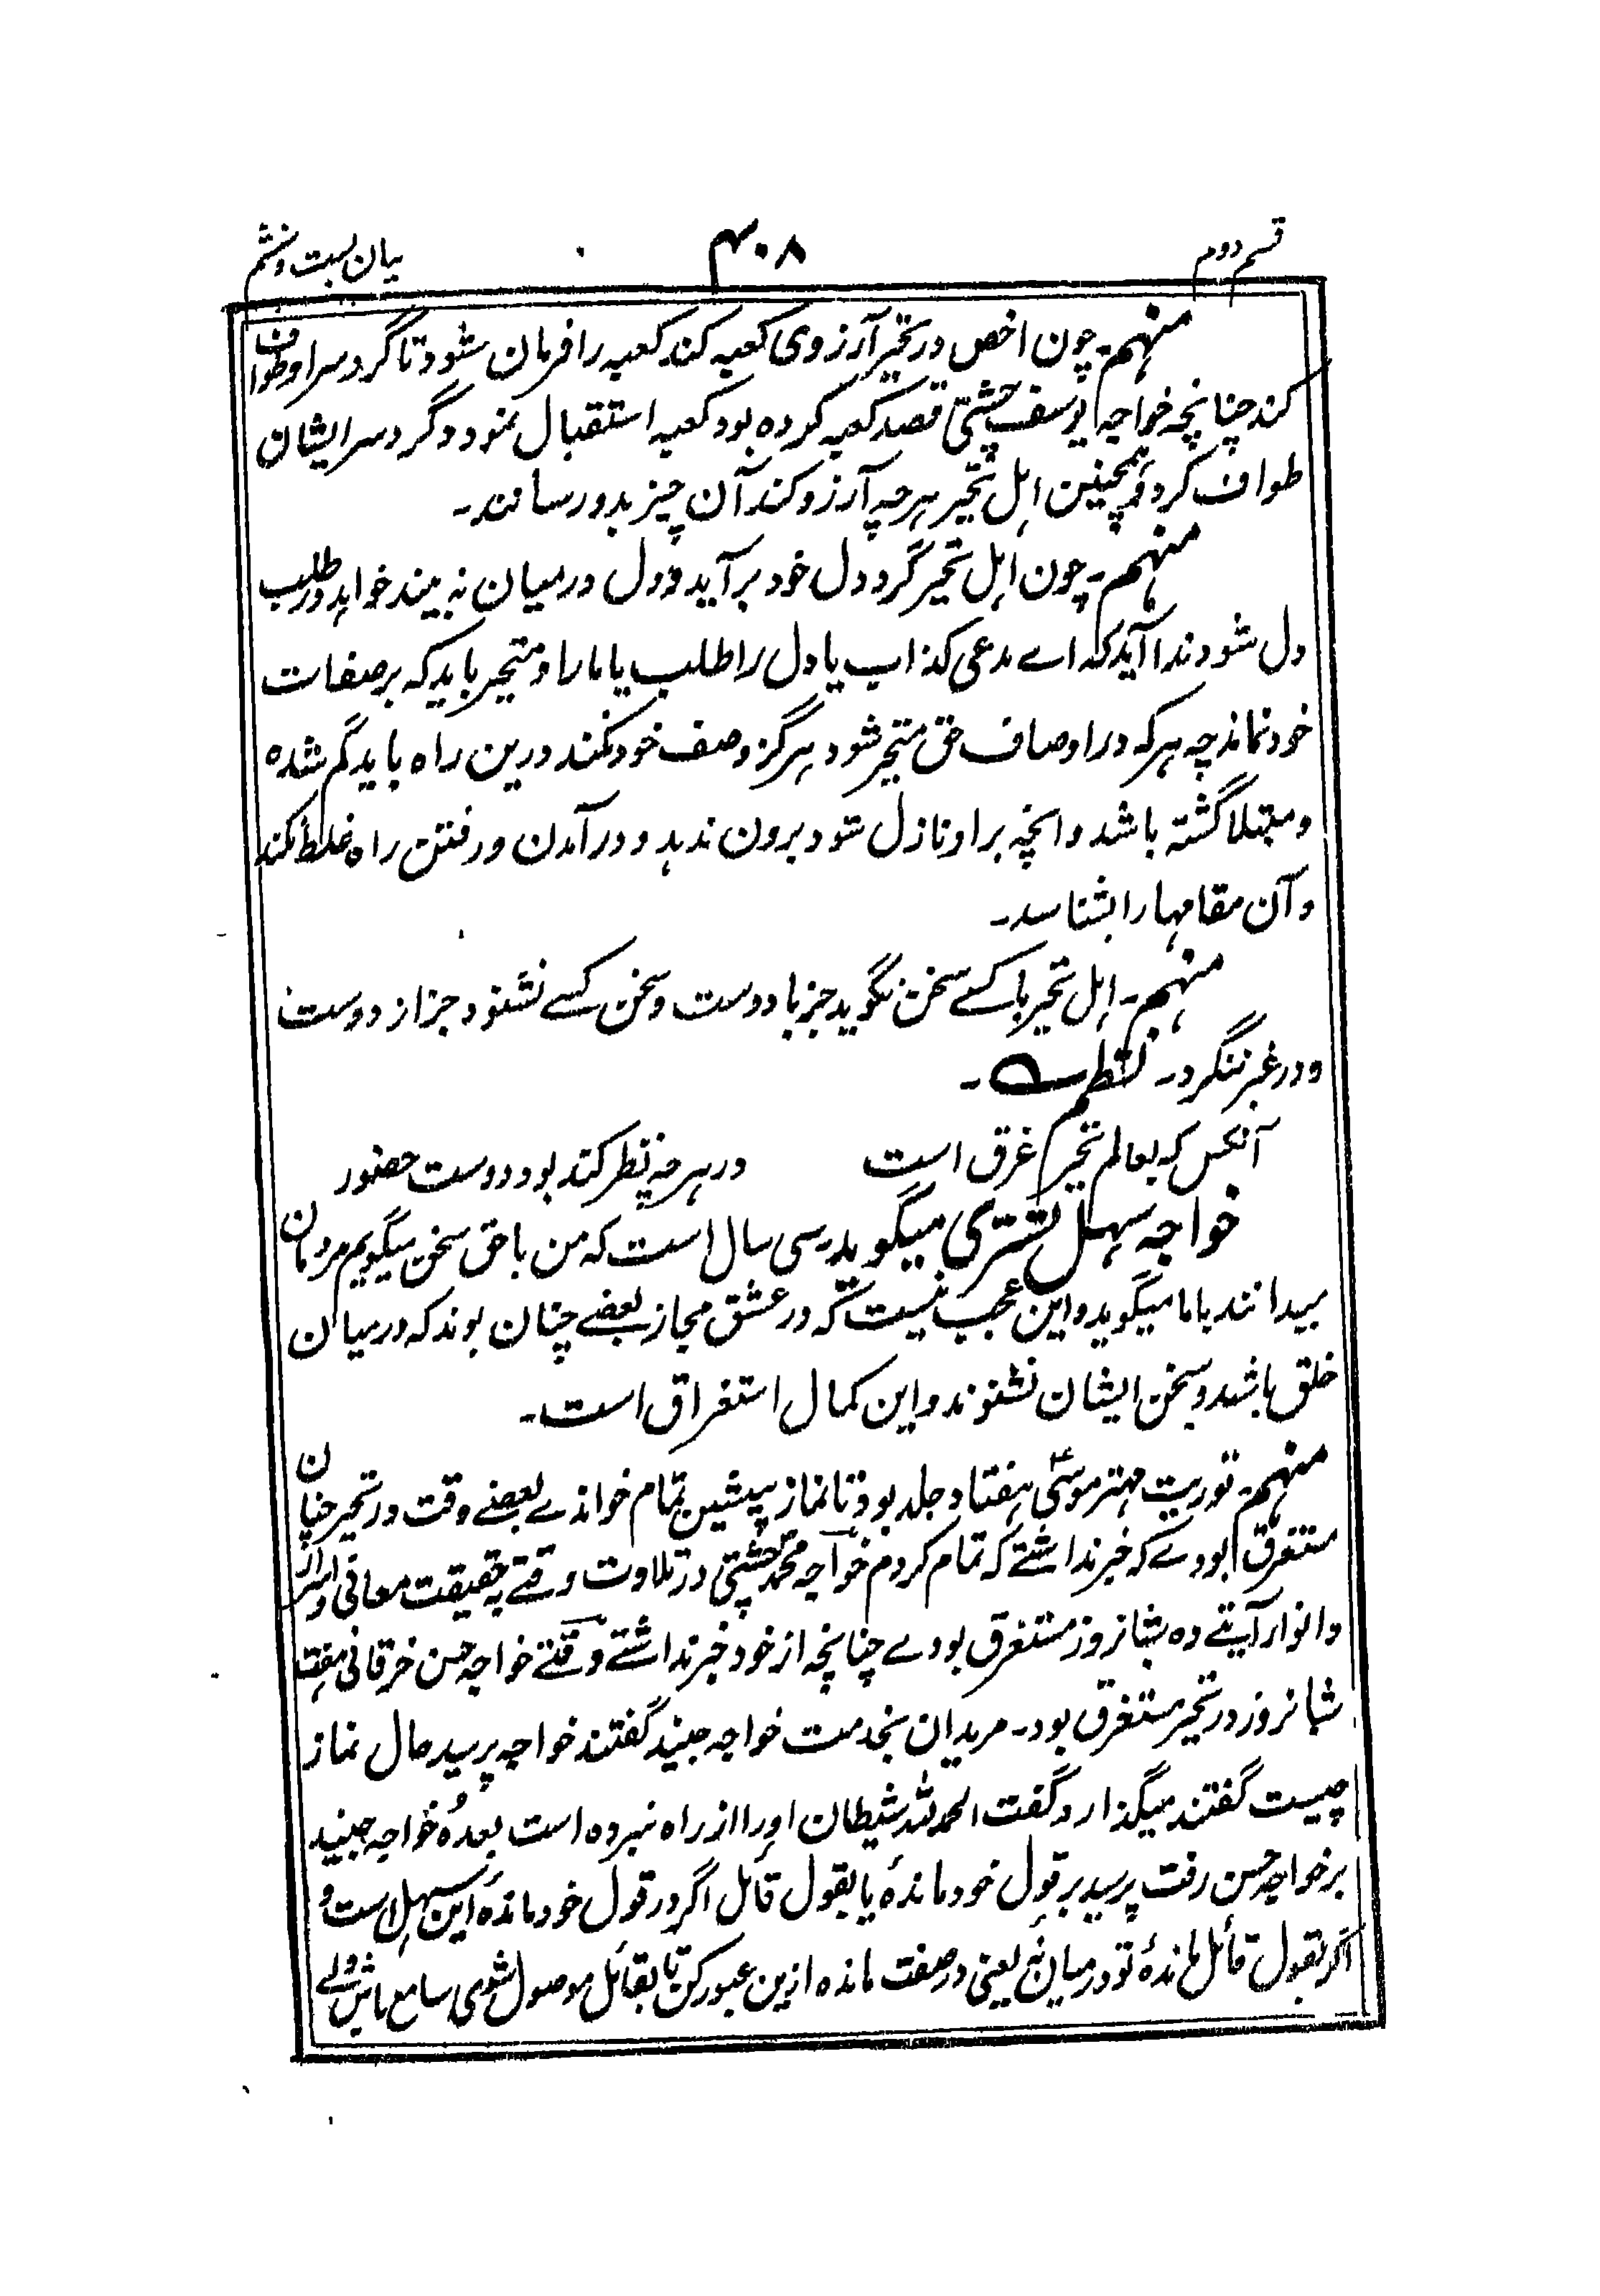 قسم دوم
۴۰۸
بیان بست و ششم
منهم۔ چون اخص در تحیر آرزوی کعبه کند کعبه را فرمان شود تا گرد سر او طواف
کند چنانچه خواجه یوسف چشتی قصد کعبه کرده بود کعبه استقبال نمود و گرد سر ایشان
طواف کرد و همچنین اهل تحیر هرچه آرزو کند آن چیز بدو رسانند۔
منهم۔ چون اهل تحیر گرد دل خود برآید و دل درمیان نه بیند خواهد در طلب
دل شود ندا آید که اے مدعی کذاب یا دل را طلب یا ما را و متحیر باید که بر صفات
خود نماند چه هرکه در اوصاف حق متحیر شود هرگز وصف خود نکند درین راه باید گم شده
و مبتلا گشته باشد و آنچه بر او نازل شود برون ندهد و در آمدن و رفتن راه غلط نکند
و آن مقامها را بشناسد۔
منهم۔ اهل تحیر با کسے سخن نگوید جز با دوست و سخن کسے نشنود جز از دوست
و در غیر ننگرد۔ نظم۔
آنکس که بعالم تحیر غرق است در هرچه نظر کند بود دوست حضور
خواجه سهل تستری میگوید سی سال است که من با حق سخن میگویم مردمان
میدانند با ما میگوید و این عجب نیست که در عشق مجاز بعضے چنان بوند که درمیان
خلق باشند و سخن ایشان نشنوند و این کمال استغراق است۔
منهم۔ توریت مهتر موسیٰؑ هفتاد جلد بود تا نماز پیشین تمام خواندے بعضے وقت در تحیر چنان
مستغرق بودے که خبر نداشتے که تمام کردم خواجه محمد چشتی در تلاوت وقتے به حقیقت معانی و اسرار
و انوار آیتے ده شبانروز مستغرق بودے چنانچه از خود خبر نداشتے وقتے خواجه حسن خرقانی هفت
شبانروز در تحیر مستغرق بود۔ مریدان بخدمت خواجه جنید گفتند خواجه پرسید حال نماز
چیست گفتند میگذارد گفت الحمد لله شیطان او را از راه نبرده است بعدهٗ خواجه جنید
بر خواجه حسن رفت پرسید بر قول خود ماندهٔ یا بقول قائل اگر در قول خود ماندهٔ این سهل است و
اگر بقول قائل ماندهٔ تو درمیان نۂ یعنی در صفت مانده ازین عبور کن تا بقائل موصول شوی سامع باش ولے